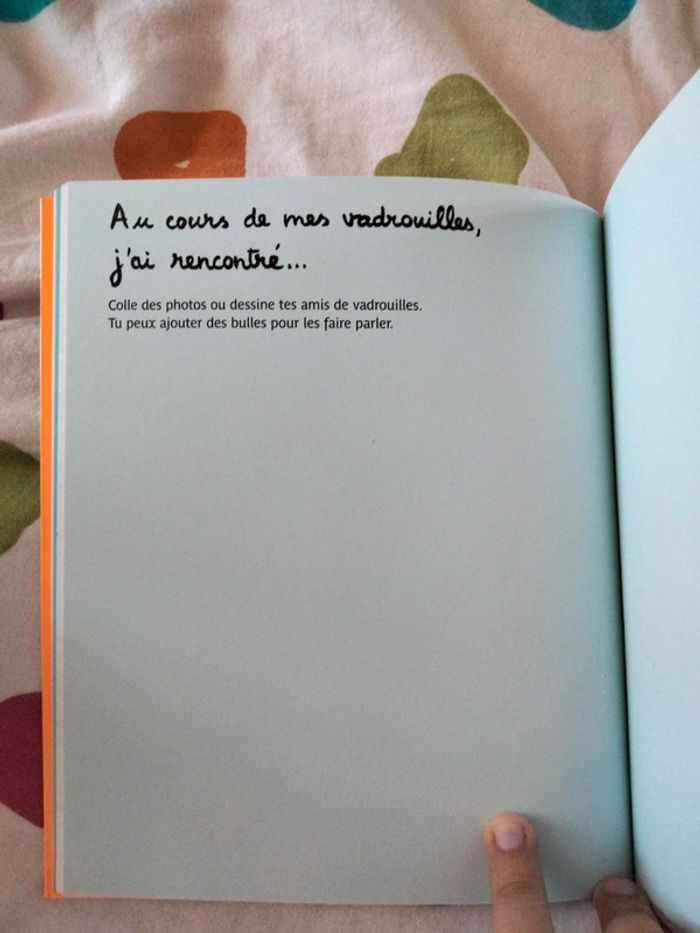 Au cours de mes vadrouilles,
j'ai rencontré...
Colle des photos ou dessine tes amis de vadrouilles.
Tu peux ajouter des bulles pour les faire parler.